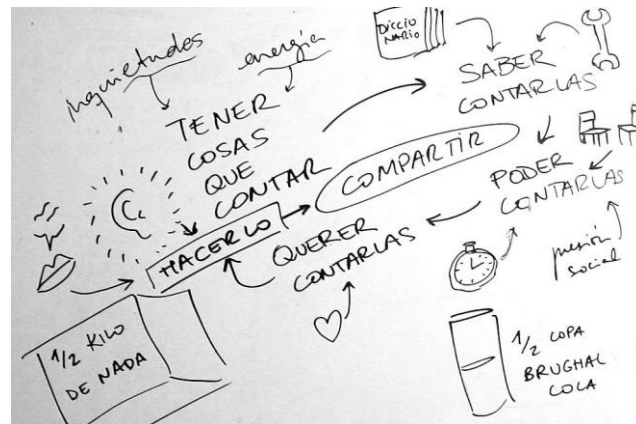 inquietudes
energía
TENER
COSAS
QUE
CONTAR
DICCIO
NARIO
SABER
CONTARLAS
COMPARTIR
PODER
CONTARLAS
HACERLO
QUERER
CONTARLAS
presión
social
1/2 KILO
DE NADA
1/2 COPA
BRUGHAL
COLA